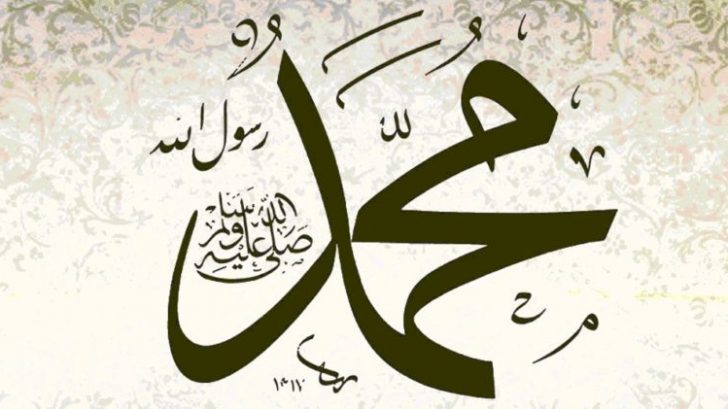 مُحَمَّدٌ
رسول الله
صلى الله عليه وسلم